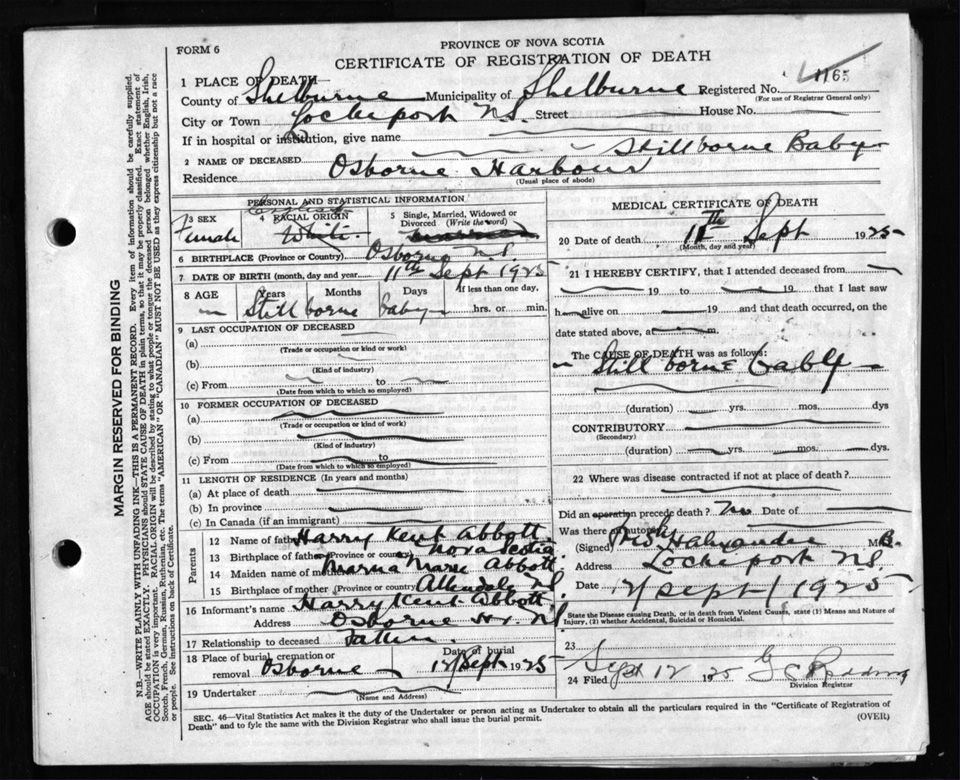 FORM 6
PROVINCE OF NOVA SCOTIA
CERTIFICATE OF REGISTRATION OF DEATH
1165
1 PLACE OF DEATH—
County of Shelburne Municipality of Shelburne Registered No.
(For use of Registrar General only)
City or Town Lockeport N.S. Street House No.
If in hospital or institution, give name
2 NAME OF DECEASED Stillborne Baby
Residence Osborne Harbour
(Usual place of abode)
PERSONAL AND STATISTICAL INFORMATION
3 SEX Female
4 RACIAL ORIGIN English White
5 Single, Married, Widowed or Divorced (Write the word)
6 BIRTHPLACE (Province or Country) Osborne N.S.
7 DATE OF BIRTH (month, day and year) 11th Sept 1925
8 AGE Years Months Days If less than one day,
Still borne baby hrs. or min.
9 LAST OCCUPATION OF DECEASED
(a)
(Trade or occupation or kind or work)
(b)
(Kind of industry)
(c) From to
(Date from which to which so employed)
10 FORMER OCCUPATION OF DECEASED
(a)
(Trade or occupation or kind of work)
(b)
(Kind of Industry)
(c) From to
(Date from which to which so employed)
11 LENGTH OF RESIDENCE (In years and months)
(a) At place of death
(b) In province
(c) In Canada (if an immigrant)
Parents
12 Name of father Harry Kent Abbott
13 Birthplace of father (Province or country) Nova Scotia
14 Maiden name of mother Marie Abbott
15 Birthplace of mother (Province or country) Allendale N.S.
16 Informant's name Harry Kent Abbott
Address Osborne Hr. N.S
17 Relationship to deceased Father
18 Place of burial, cremation or removal Osborne
Date of burial 12/Sept 1925
19 Undertaker
(Name and Address)
MEDICAL CERTIFICATE OF DEATH
20 Date of death 11th Sept 1925
(Month, day and year)
21 I HEREBY CERTIFY, that I attended deceased from
19 to 19 that I last saw
h alive on 19 and that death occurred, on the
date stated above, at m.
The CAUSE OF DEATH was as follows:
Still borne baby
(duration) yrs. mos. dys
CONTRIBUTORY
(Secondary)
(duration) yrs. mos. dys.
22 Where was disease contracted if not at place of death?
Did an operation precede death? No Date of
Was there an autopsy
(Signed) M.B.
Address Lockeport N.S.
Date 12/Sept/1925
State the Disease causing Death, or in death from Violent Causes, state (1) Means and Nature of
Injury, (2) whether Accidental, Suicidal or Homicidal.
23
24 Filed Sept 12 1925 G C
Division Registrar
SEC. 46—Vital Statistics Act makes it the duty of the Undertaker or person acting as Undertaker to obtain all the particulars required in the "Certificate of Registration of
Death" and to fyle the same with the Division Registrar who shall issue the burial permit.
(OVER)
MARGIN RESERVED FOR BINDING
N.B.—WRITE PLAINLY WITH UNFADING INK—THIS IS A PERMANENT RECORD. Every item of information should be carefully supplied.
AGE should be stated EXACTLY. PHYSICIANS should STATE CAUSE OF DEATH in plain terms, so that it may be properly classified. Exact statement of
OCCUPATION is very important. RACIAL ORIGIN will be described by stating to what people or tongue the deceased person belonged whether English, Irish,
Scotch, French, German, Russian, Ruthenian, etc. The terms "AMERICAN" OR "CANADIAN" MUST NOT BE USED as they express citizenship but not a race
or people. See instructions on back of Certificate.